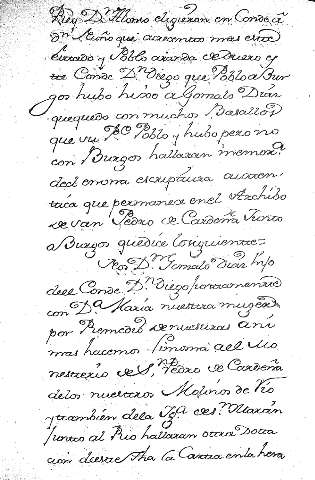 Rey D.n Alonso eligieron en Conde a
D.n Nuño que aumento mas este
estado y Poblo aranda de Duero y
este Conde D.n Diego que Poblo a Bur
gos hubo hixo a Gonzalo Dias
que quedo con muchos Basallos
que su P.e Poblo y hubo pero no
con Burgos hallaran memor.a
de el en una escriptura auten
tica que permanece en el Archibo
de San Pedro de Cardeña Junto
a Burgos que dice lo siguiente=
Yo D.n Gonzalo Dias hijo
de el Conde D.n Diego juntamente
con D.a Maria nuestra muger
por Remedio de nuestras ani
mas hacemos limosna a el Mo
nesterio de S.n Pedro de Cardeña
de los nuestros Molinos de Rio
y tambien de la Ig.a de S.n Martin
Junto al Rio hallaran otra dota
cion de este